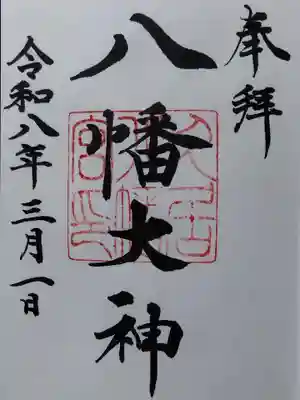 奉拝
八幡大神
令和八年三月一日